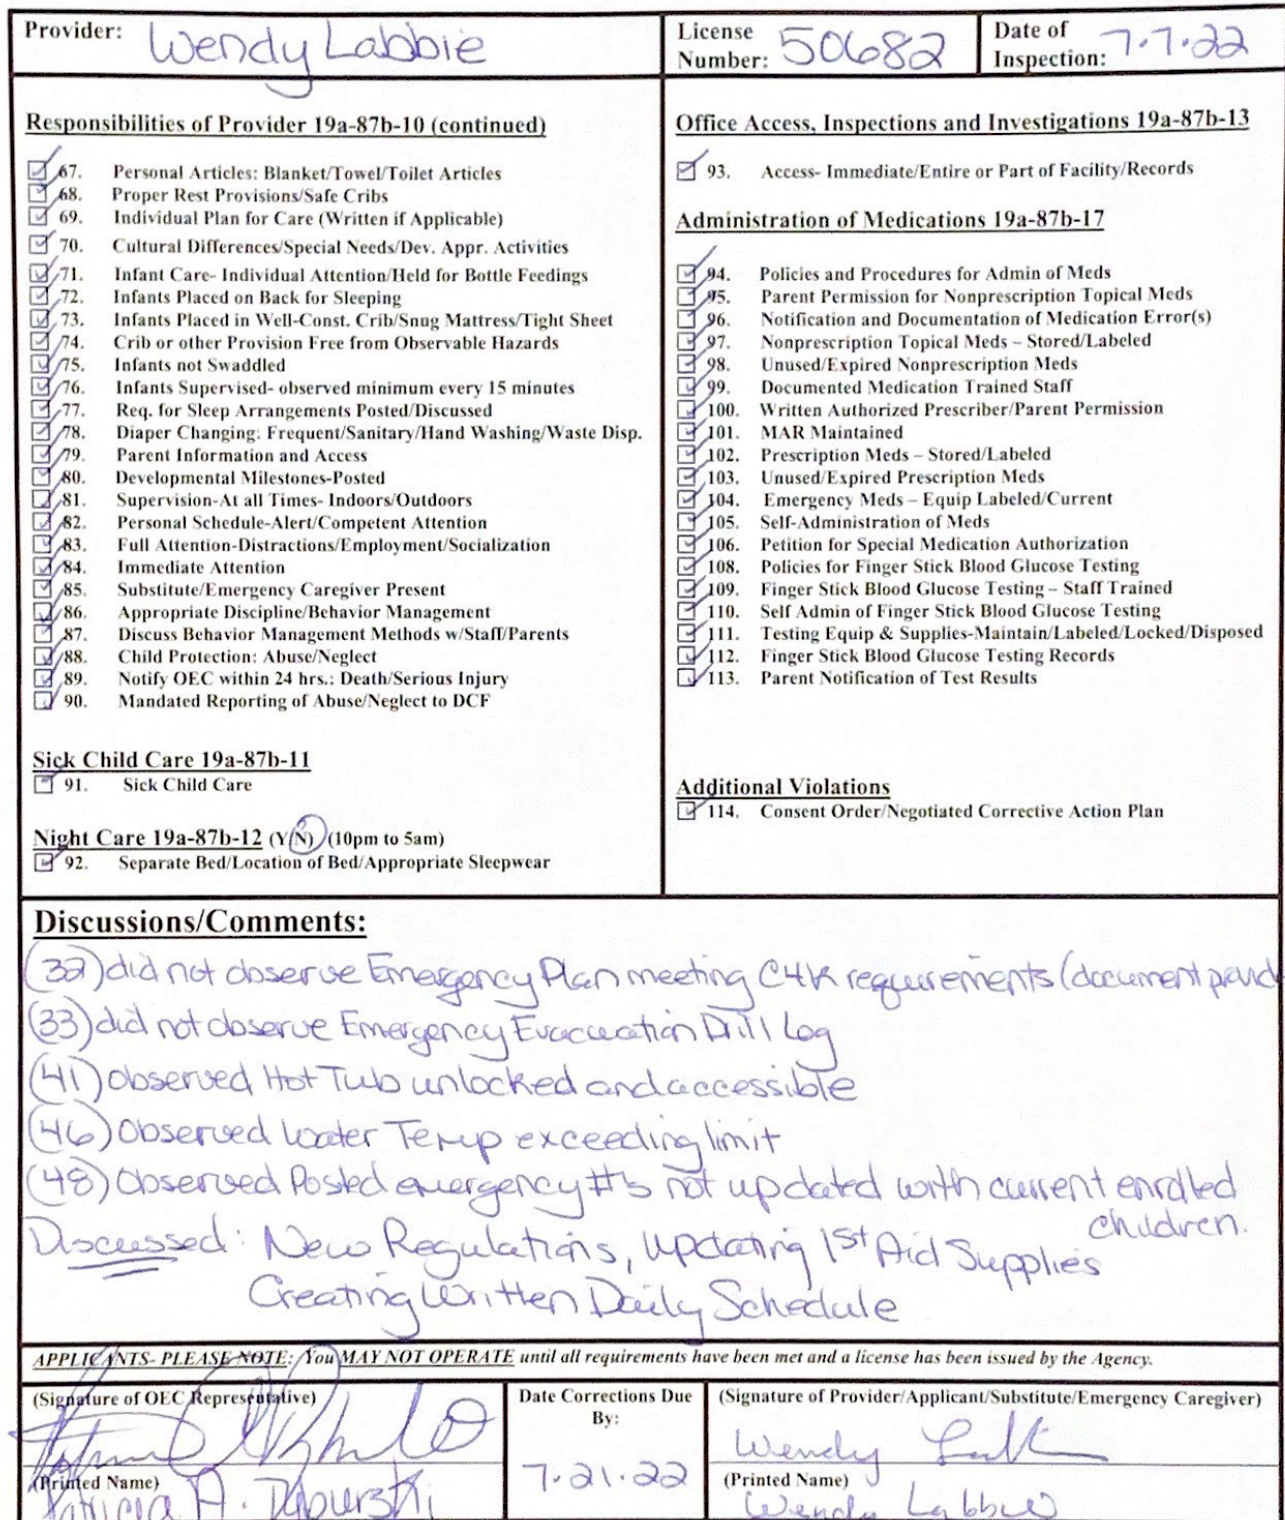 Provider: Wendy Labbie
License Number: 50682
Date of Inspection: 7.7.22
Responsibilities of Provider 19a-87b-10 (continued)
67. Personal Articles: Blanket/Towel/Toilet Articles
68. Proper Rest Provisions/Safe Cribs
69. Individual Plan for Care (Written if Applicable)
70. Cultural Differences/Special Needs/Dev. Appr. Activities
71. Infant Care- Individual Attention/Held for Bottle Feedings
72. Infants Placed on Back for Sleeping
73. Infants Placed in Well-Const. Crib/Snug Mattress/Tight Sheet
74. Crib or other Provision Free from Observable Hazards
75. Infants not Swaddled
76. Infants Supervised- observed minimum every 15 minutes
77. Req. for Sleep Arrangements Posted/Discussed
78. Diaper Changing: Frequent/Sanitary/Hand Washing/Waste Disp.
79. Parent Information and Access
80. Developmental Milestones-Posted
81. Supervision-At all Times- Indoors/Outdoors
82. Personal Schedule-Alert/Competent Attention
83. Full Attention-Distractions/Employment/Socialization
84. Immediate Attention
85. Substitute/Emergency Caregiver Present
86. Appropriate Discipline/Behavior Management
87. Discuss Behavior Management Methods w/Staff/Parents
88. Child Protection: Abuse/Neglect
89. Notify OEC within 24 hrs.: Death/Serious Injury
90. Mandated Reporting of Abuse/Neglect to DCF
Sick Child Care 19a-87b-11
91. Sick Child Care
Night Care 19a-87b-12 (Y/N) (10pm to 5am)
92. Separate Bed/Location of Bed/Appropriate Sleepwear
Office Access, Inspections and Investigations 19a-87b-13
93. Access- Immediate/Entire or Part of Facility/Records
Administration of Medications 19a-87b-17
94. Policies and Procedures for Admin of Meds
95. Parent Permission for Nonprescription Topical Meds
96. Notification and Documentation of Medication Error(s)
97. Nonprescription Topical Meds – Stored/Labeled
98. Unused/Expired Nonprescription Meds
99. Documented Medication Trained Staff
100. Written Authorized Prescriber/Parent Permission
101. MAR Maintained
102. Prescription Meds – Stored/Labeled
103. Unused/Expired Prescription Meds
104. Emergency Meds – Equip Labeled/Current
105. Self-Administration of Meds
106. Petition for Special Medication Authorization
108. Policies for Finger Stick Blood Glucose Testing
109. Finger Stick Blood Glucose Testing – Staff Trained
110. Self Admin of Finger Stick Blood Glucose Testing
111. Testing Equip & Supplies-Maintain/Labeled/Locked/Disposed
112. Finger Stick Blood Glucose Testing Records
113. Parent Notification of Test Results
Additional Violations
114. Consent Order/Negotiated Corrective Action Plan
Discussions/Comments:
(32) did not observe Emergency Plan meeting C4K requirements (document
(33) did not observe Emergency Evacuation Drill Log
(41) Observed Hot Tub unlocked and accessible
(46) Observed Water Temp exceeding limit
(48) Observed Posted emergency #'s not updated with current enrolled
children.
Discussed: New Regulations, Updating 1st Aid Supplies
Creating Written Daily Schedule
APPLICANTS- PLEASE NOTE: You MAY NOT OPERATE until all requirements have been met and a license has been issued by the Agency.
(Signature of OEC Representative)
(Printed Name)
Patricia A.
Date Corrections Due By:
7.21.22
(Signature of Provider/Applicant/Substitute/Emergency Caregiver)
Wendy
(Printed Name)
Wendy Labbie